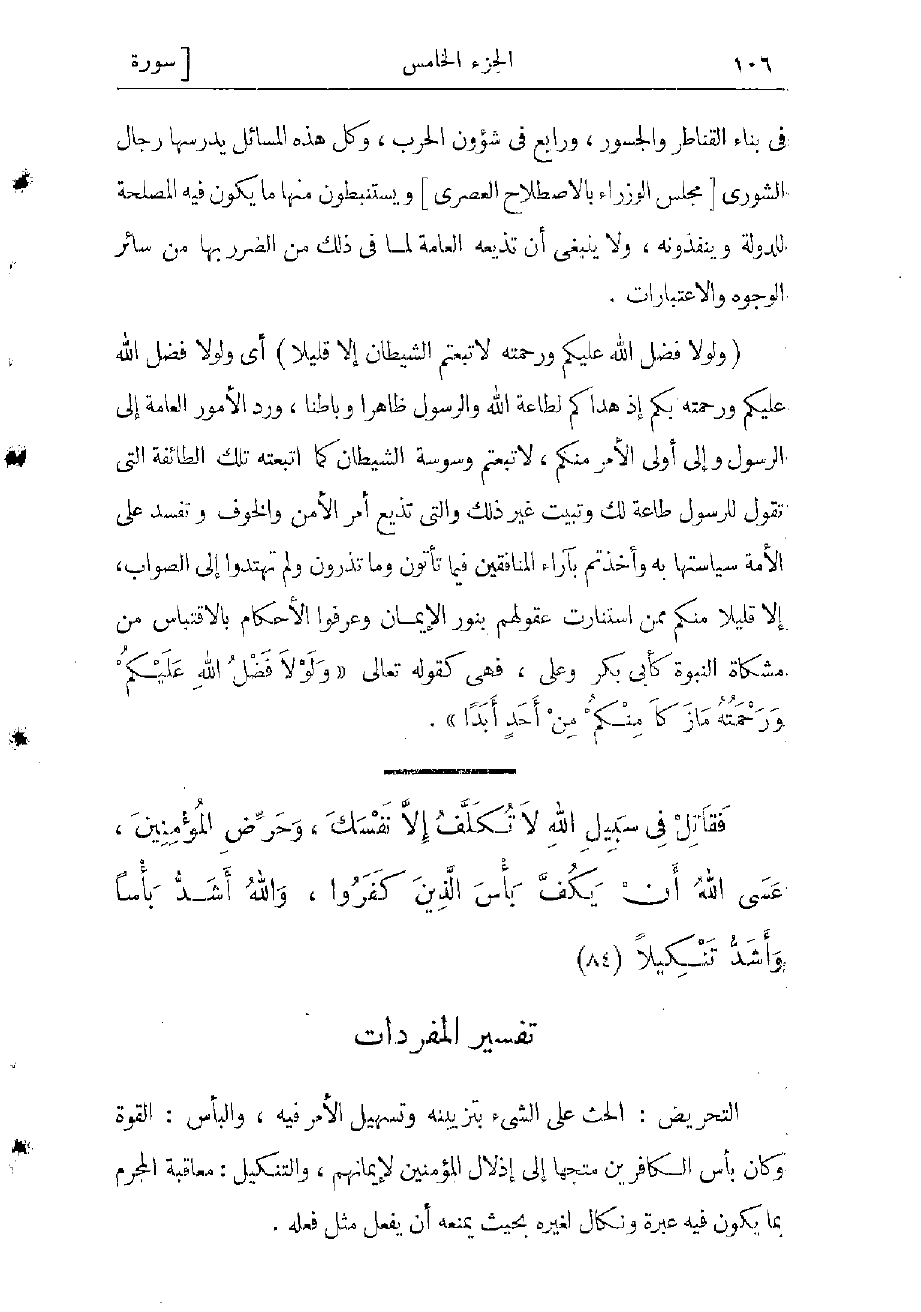 ١٠٦ الجزء الخامس [ سورة
فى بناء القناطر والجسور ، ورابع فى شؤون الحرب ، وكل هذه المسائل يدرسها رجال
الشورى [ مجلس الوزراء بالاصطلاح العصرى ] ويستنبطون منها ما يكون فيه المصلحة
للدولة وينفذونه ، ولا ينبغى أن تذيعه العامة لما فى ذلك من الضرر بها من سائر
الوجوه والاعتبارات .
( ولولا فضل الله عليكم ورحمته لاتبعتم الشيطان إلا قليلا ) أى ولولا فضل الله
عليكم ورحمته بكم إذ هداكم لطاعة الله والرسول ظاهرا وباطنا ، ورد الأمور العامة إلى
الرسول وإلى أولى الأمر منكم ، لاتبعتم وسوسة الشيطان كما اتبعته تلك الطائفة التى
تقول للرسول طاعة لك وتبيت غير ذلك والتى تذيع أمر الأمن والخوف وتفسد على
الأمة سياستها به وأخذتم بآراء المنافقين فيما تأتون وما تذرون ولم تهتدوا إلى الصواب،
إلا قليلا منكم ممن استنارت عقولهم بنور الإيمان وعرفوا الأحكام بالاقتباس من
مشكاة النبوة كأبى بكر وعلى ، فهى كقوله تعالى « وَلَوْلاَ فَضْلُ اللهِ عَلَيْكُمْ
وَرَحْمَتُهُ مَازَكاَ مِنْكُمْ مِنْ أَحَدٍ أَبَدًا » .
فَقَاتِلْ فِى سَبِيلِ اللهِ لاَ تُكَلَّفُ إِلاَّ نَفْسَكَ ، وَحَرِّضِ الْمُؤْمِنِينَ ،
عَسَى اللهُ أَنْ يَكُفَّ بَأْسَ الَّذِينَ كَفَرُوا ، وَاللهُ أَشَدُّ بَأْساً
وَأَشَدُّ تَنْكِيلاً (٨٤)
تفسير المفردات
التحريض : الحث على الشىء بتزيينه وتسهيل الأمر فيه ، والبأس : القوة
وكان بأس الكافرين متجها إلى إذلال المؤمنين لإيمانهم ، والتنكيل : معاقبة المجرم
بما يكون فيه عبرة ونكال لغيره بحيث يمنعه أن يفعل مثل فعله .